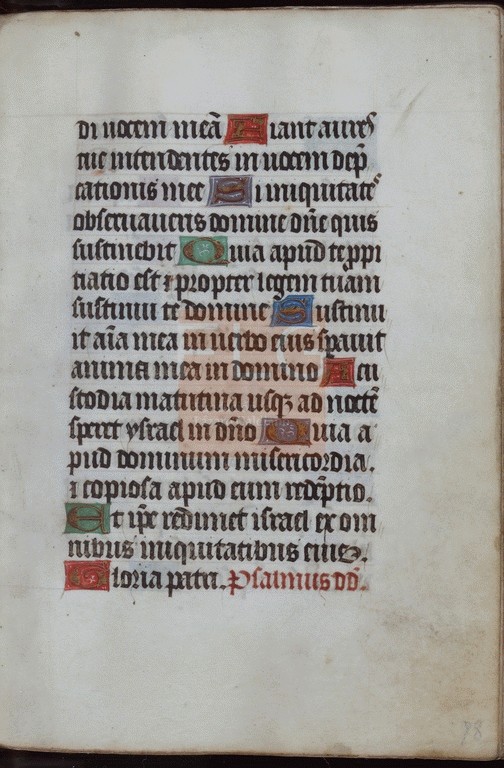 di uocem meā Fiant aures
tue intendentes in uocem dep̄
cationis mee Si iniquitates
obseruaueris domine dn̄e quis
sustinebit Quia apud te ꝓpi
tiatio est ⁊ propter legem tuam
sustinui te domine Sustinu
it aīa mea in uerbo eius spauit
anima mea in domino A cu
stodia matutina usqꝫ ad noctē
speret ysrael in dn̄o Quia a
pud dominum misericordia.
⁊ copiosa apud eum redēptio.
Et ip̄e redimet israel ex om
nibus iniquitatibus eius.
Gloria patri. Psalmus dd̄.
98